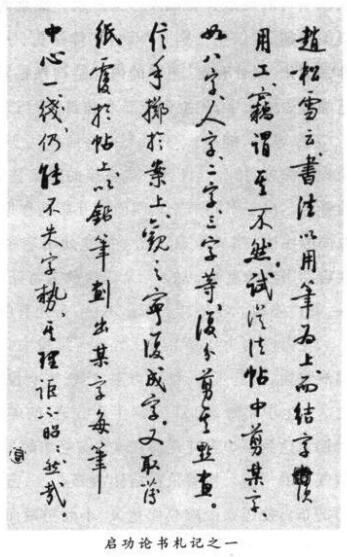 趙松雪云、書法以用筆為上、而結字亦須
用工、竊謂其不然。試從法帖中剪某字、
如八字、人字、二字三字等、復分剪其點畫。
信手擲於案上、觀之寧復成字。又取薄
紙覆於帖上、以鉛筆劃出某字每筆
中心一綫、仍能不失字勢、其理詎不昭昭然哉。
启功论书札记之一